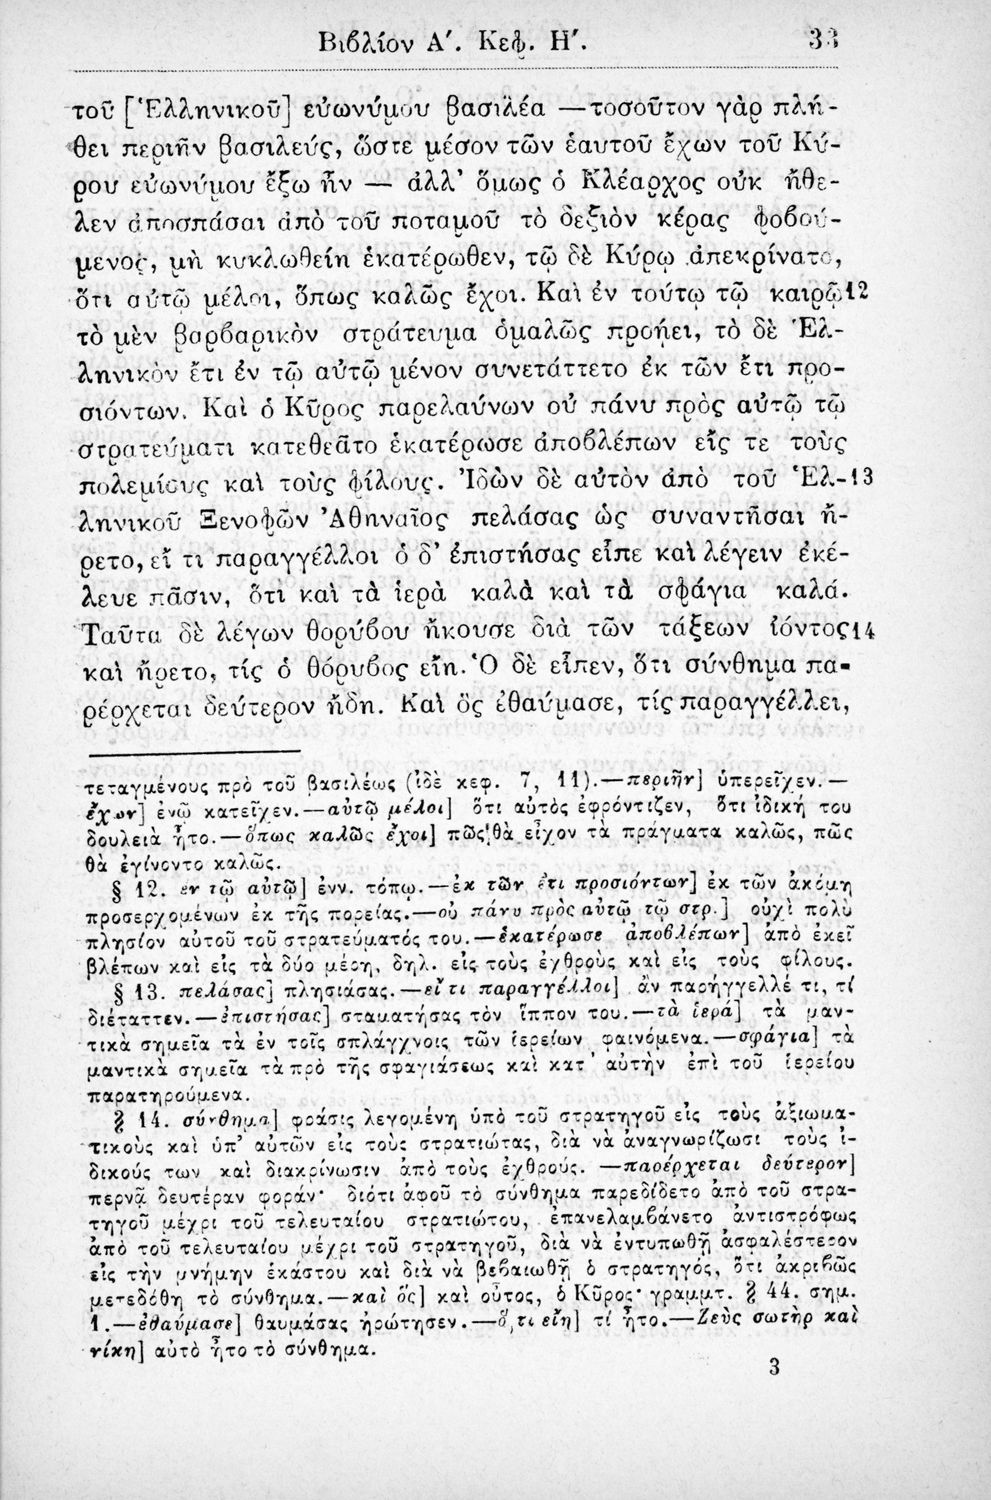 Βιβλίον Α'. Κεφ. Η'. 33
τοῦ [Ἑλληνικοῦ] εὐωνύμου βασιλέα —τοσοῦτον γὰρ πλή-
θει περιῆν βασιλεύς, ὥστε μέσον τῶν ἑαυτοῦ ἔχων τοῦ Κύ-
ρου εὐωνύμου ἔξω ἦν — ἀλλ' ὅμως ὁ Κλέαρχος οὐκ ἤθε-
λεν ἀποσπάσαι ἀπὸ τοῦ ποταμοῦ τὸ δεξιὸν κέρας φοβού-
μενος, μὴ κυκλωθείη ἑκατέρωθεν, τῷ δὲ Κύρῳ ἀπεκρίνατο,
ὅτι αὐτῷ μέλοι, ὅπως καλῶς ἔχοι. Καὶ ἐν τούτῳ τῷ καιρῷ 12
τὸ μὲν βαρβαρικὸν στράτευμα ὁμαλῶς προῄει, τὸ δὲ Ἑλ-
ληνικὸν ἔτι ἐν τῷ αὐτῷ μένον συνετάττετο ἐκ τῶν ἔτι προ-
σιόντων. Καὶ ὁ Κῦρος παρελαύνων οὐ πάνυ πρὸς αὐτῷ τῷ
στρατεύματι κατεθεᾶτο ἑκατέρωσε ἀποβλέπων εἴς τε τοὺς
πολεμίους καὶ τοὺς φίλους. Ἰδὼν δὲ αὐτὸν ἀπὸ τοῦ Ἑλ- 13
ληνικοῦ Ξενοφῶν Ἀθηναῖος πελάσας ὡς συναντῆσαι ἤ-
ρετο, εἴ τι παραγγέλλοι ὁ δ' ἐπιστήσας εἶπε καὶ λέγειν ἐκέ-
λευε πᾶσιν, ὅτι καὶ τὰ ἱερὰ καλὰ καὶ τὰ σφάγια καλά.
Ταῦτα δὲ λέγων θορύβου ἤκουσε διὰ τῶν τάξεων ἰόντος 14
καὶ ἤρετο, τίς ὁ θόρυβος εἴη. Ὁ δὲ εἶπεν, ὅτι σύνθημα πα-
ρέρχεται δεύτερον ἤδη. Καὶ ὃς ἐθαύμασε, τίς παραγγέλλει,
τεταγμένους πρὸ τοῦ βασιλέως (ἰδὲ κεφ. 7, 11).—περιῆν] ὑπερεῖχεν.—
ἔχων] ἐνῷ κατεῖχεν.—αὐτῷ μέλοι] ὅτι αὐτὸς ἐφρόντιζεν, ὅτι ἰδική του
δουλειὰ ἦτο.—ὅπως καλῶς ἔχοι] πῶς θὰ εἶχον τὰ πράγματα καλῶς, πῶς
θὰ ἐγίνοντο καλῶς.
§ 12. ἐν τῷ αὐτῷ] ἐνν. τόπῳ.—ἐκ τῶν ἔτι προσιόντων] ἐκ τῶν ἀκόμη
προσερχομένων ἐκ τῆς πορείας.—οὐ πάνυ πρὸς αὐτῷ τῷ στρ.] οὐχὶ πολὺ
πλησίον αὐτοῦ τοῦ στρατεύματός του.—ἑκατέρωσε ἀποβλέπων] ἀπὸ ἐκεῖ
βλέπων καὶ εἰς τὰ δύο μέρη, δηλ. εἰς τοὺς ἐχθροὺς καὶ εἰς τοὺς φίλους.
§ 13. πελάσας] πλησιάσας.—εἴ τι παραγγέλλοι] ἂν παρήγγελλέ τι, τί
διέταττεν.—ἐπιστήσας] σταματήσας τὸν ἵππον του.—τὰ ἱερά] τὰ μαν-
τικὰ σημεῖα τὰ ἐν τοῖς σπλάγχνοις τῶν ἱερείων φαινόμενα.—σφάγια] τὰ
μαντικὰ σημεῖα τὰ πρὸ τῆς σφαγιάσεως καὶ κατ' αὐτὴν ἐπὶ τοῦ ἱερείου
παρατηρούμενα.
§ 14. σύνθημα] φράσις λεγομένη ὑπὸ τοῦ στρατηγοῦ εἰς τοὺς ἀξιωμα-
τικοὺς καὶ ὑπ' αὐτῶν εἰς τοὺς στρατιώτας, διὰ νὰ ἀναγνωρίζωσι τοὺς ἰ-
δικούς των καὶ διακρίνωσιν ἀπὸ τοὺς ἐχθρούς. —παρέρχεται δεύτερον]
περνᾷ δευτέραν φοράν· διότι ἀφοῦ τὸ σύνθημα παρεδίδετο ἀπὸ τοῦ στρα-
τηγοῦ μέχρι τοῦ τελευταίου στρατιώτου, ἐπανελαμβάνετο ἀντιστρόφως
ἀπὸ τοῦ τελευταίου μέχρι τοῦ στρατηγοῦ, διὰ νὰ ἐντυπωθῇ ἀσφαλέστερον
εἰς τὴν μνήμην ἑκάστου καὶ διὰ νὰ βεβαιωθῇ ὁ στρατηγός, ὅτι ἀκριβῶς
μετεδόθη τὸ σύνθημα.—καὶ ὃς] καὶ οὗτος, ὁ Κῦρος· γραμμτ. § 44. σημ.
1.—ἐθαύμασε] θαυμάσας ἠρώτησεν.—ὅ,τι εἴη] τί ἦτο.—Ζεὺς σωτὴρ καὶ
νίκη] αὐτὸ ἦτο τὸ σύνθημα.
3